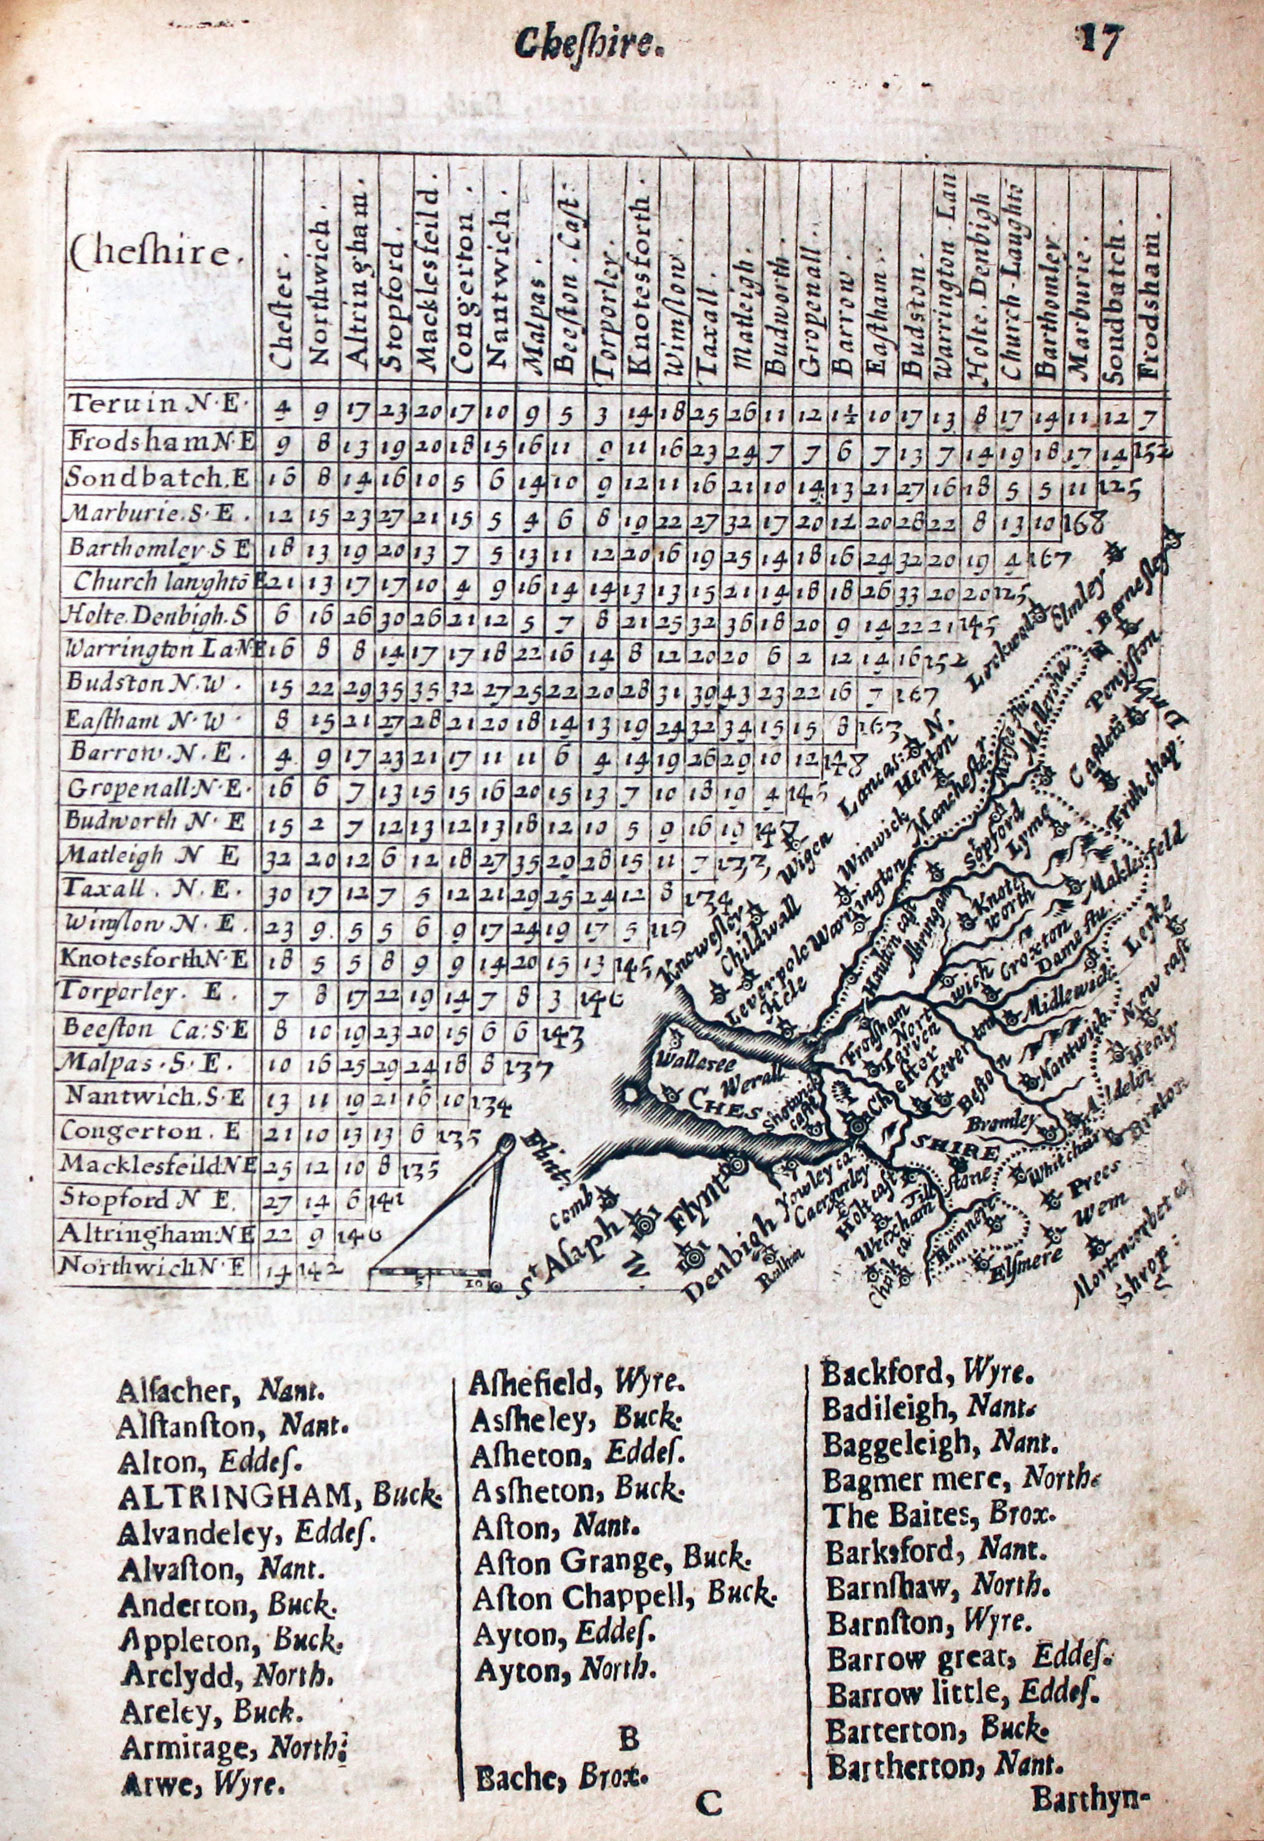 Cheſhire. 17
Cheſhire. Cheſter. Northwich. Altringham. Stopford. Mackleſfeild. Congerton. Nantwich. Malpas. Beeſton. Caſt: Torporley. Knotesforth. Winſlow. Taxall. Matleigh. Budworth. Gropenall. Barrow. Eaſtham. Budston. Warrington. Lan Holte. Denbigh Church-Laughtō Barthomley. Marburie. Sondbatch. Frodsham.
Teruin N·E· 4 9 17 23 20 17 10 9 5 3 14 18 25 26 11 12 1½ 10 17 13 8 17 14 11 12 7
Frodsham N·E 9 8 13 19 20 18 15 16 11 9 11 16 23 24 7 7 6 7 13 7 14 19 18 17 14 152
Sondbatch.E 16 8 14 16 10 5 6 14 10 9 12 11 16 21 10 14 13 21 27 16 18 5 5 11 125
Marburie.S·E. 12 15 23 27 21 15 5 4 6 8 19 22 27 32 17 20 12 20 28 22 8 13 10 168
Barthomley S E 18 13 19 20 13 7 5 13 11 12 20 16 19 25 14 18 16 24 32 20 19 4 167
Church laughtō E 21 13 17 17 10 4 9 16 14 14 13 13 15 21 14 18 18 26 33 20 20 125
Holte.Denbigh.S 6 16 26 30 26 21 12 5 7 8 21 25 32 36 18 20 9 14 22 21 145
Warrington La·NE 16 8 8 14 17 17 18 22 16 14 8 12 20 20 6 2 12 14 16 152
Budston N.W. 15 22 29 35 35 32 27 25 22 20 28 31 39 43 23 22 16 7 167
Eaſtham N·W· 8 15 21 27 28 21 20 18 14 13 19 24 32 34 15 15 8 163
Barrow.N.E. 4 9 17 23 21 17 11 11 6 4 14 19 26 29 10 12 148
Gropenall·N·E· 16 6 7 13 15 15 16 20 15 13 7 10 18 19 4 145
Budworth N·E 15 2 7 12 13 12 13 18 12 10 5 9 16 19 147
Matleigh N E 32 20 12 6 12 18 27 35 29 28 15 11 7 133
Taxall. N.E. 30 17 12 7 5 12 21 29 25 24 12 8 134
Winſlow. N.E. 23 9 5 5 6 9 17 24 19 17 5 119
Knotesforth N·E 18 5 5 8 9 9 14 20 15 13 145
Torporley. E. 7 8 17 22 19 14 7 8 3 146
Beeſton Ca:S·E 8 10 19 23 20 15 6 6 143
Malpas·S·E. 10 16 25 29 24 18 8 137
Nantwich.S·E 13 11 19 21 16 10 134
Congerton. E 21 10 13 13 6 135
Mackleſfeild NE 25 12 10 8 135
Stopford N E. 27 14 6 141
Altringham NE 22 9 146
Northwich N·E 14 142
5 10
Lockwood
Elmley
Barneſley
Peniſton
Lancas: N.
Henton
Mancheſter
Caſtletō
Frith chap:
Wigen
Winwick
Warrington
Stopford
Lyme
Makleſfeld
Knowſley
Childwall
Leverpole
Hele
Knotes
worth
Croxton
Leeke
Wich
Midlewich
New caſt
Healy
Frodſham
Nort
Tarven
Cheſter
Tever ton
Beſton
Nantwich
Wallaſee
Werall
CHES
SHIRE
Bromley
Whitchur
Stone
Prees
Wem
Shrop:
Flynt
Comb
St Aſaph
W
Denbigh
Ruthin
Yowley ca
Caergurley
Holt caſt
Wrexham
Chirk
ca.
Hamnere
Elſmere
Alſacher, Nant.
Alſtanſton, Nant.
Alton, Eddeſ.
ALTRINGHAM, Buck.
Alvandeley, Eddeſ.
Alvaſton, Nant.
Anderton, Buck.
Appleton, Buck.
Arclydd, North.
Areley, Buck.
Armitage, North.
Arwe, Wyre.
Aſhefield, Wyre.
Aſſheley, Buck.
Aſheton, Eddeſ.
Aſſheton, Buck.
Aſton, Nant.
Aſton Grange, Buck.
Aſton Chappell, Buck.
Ayton, Eddeſ.
Ayton, North.
B
Bache, Brox.
Backford, Wyre.
Badileigh, Nant.
Baggeleigh, Nant.
Bagmer mere, North.
The Baites, Brox.
Barksford, Nant.
Barnſhaw, North.
Barnſton, Wyre.
Barrow great, Eddeſ.
Barrow little, Eddeſ.
Barterton, Buck.
Bartherton, Nant.
C Barthyn-